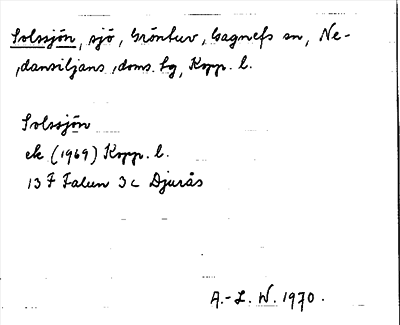 Solssjön, sjö, Gröntuv, Gagnefs sn, Ne-
dansiljans doms. tg, Kopp. l.
Solssjön
ek (1969) Kopp. l.
13 F Falun 3 c Djurås
A.-L. W. 1970.